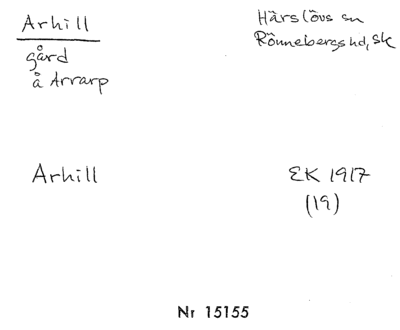 Arhill
gård
å Arrarp
Härslövs sn
Rönnebergs hd, Sk
Arhill
EK 1917
(19)
Nr 15155